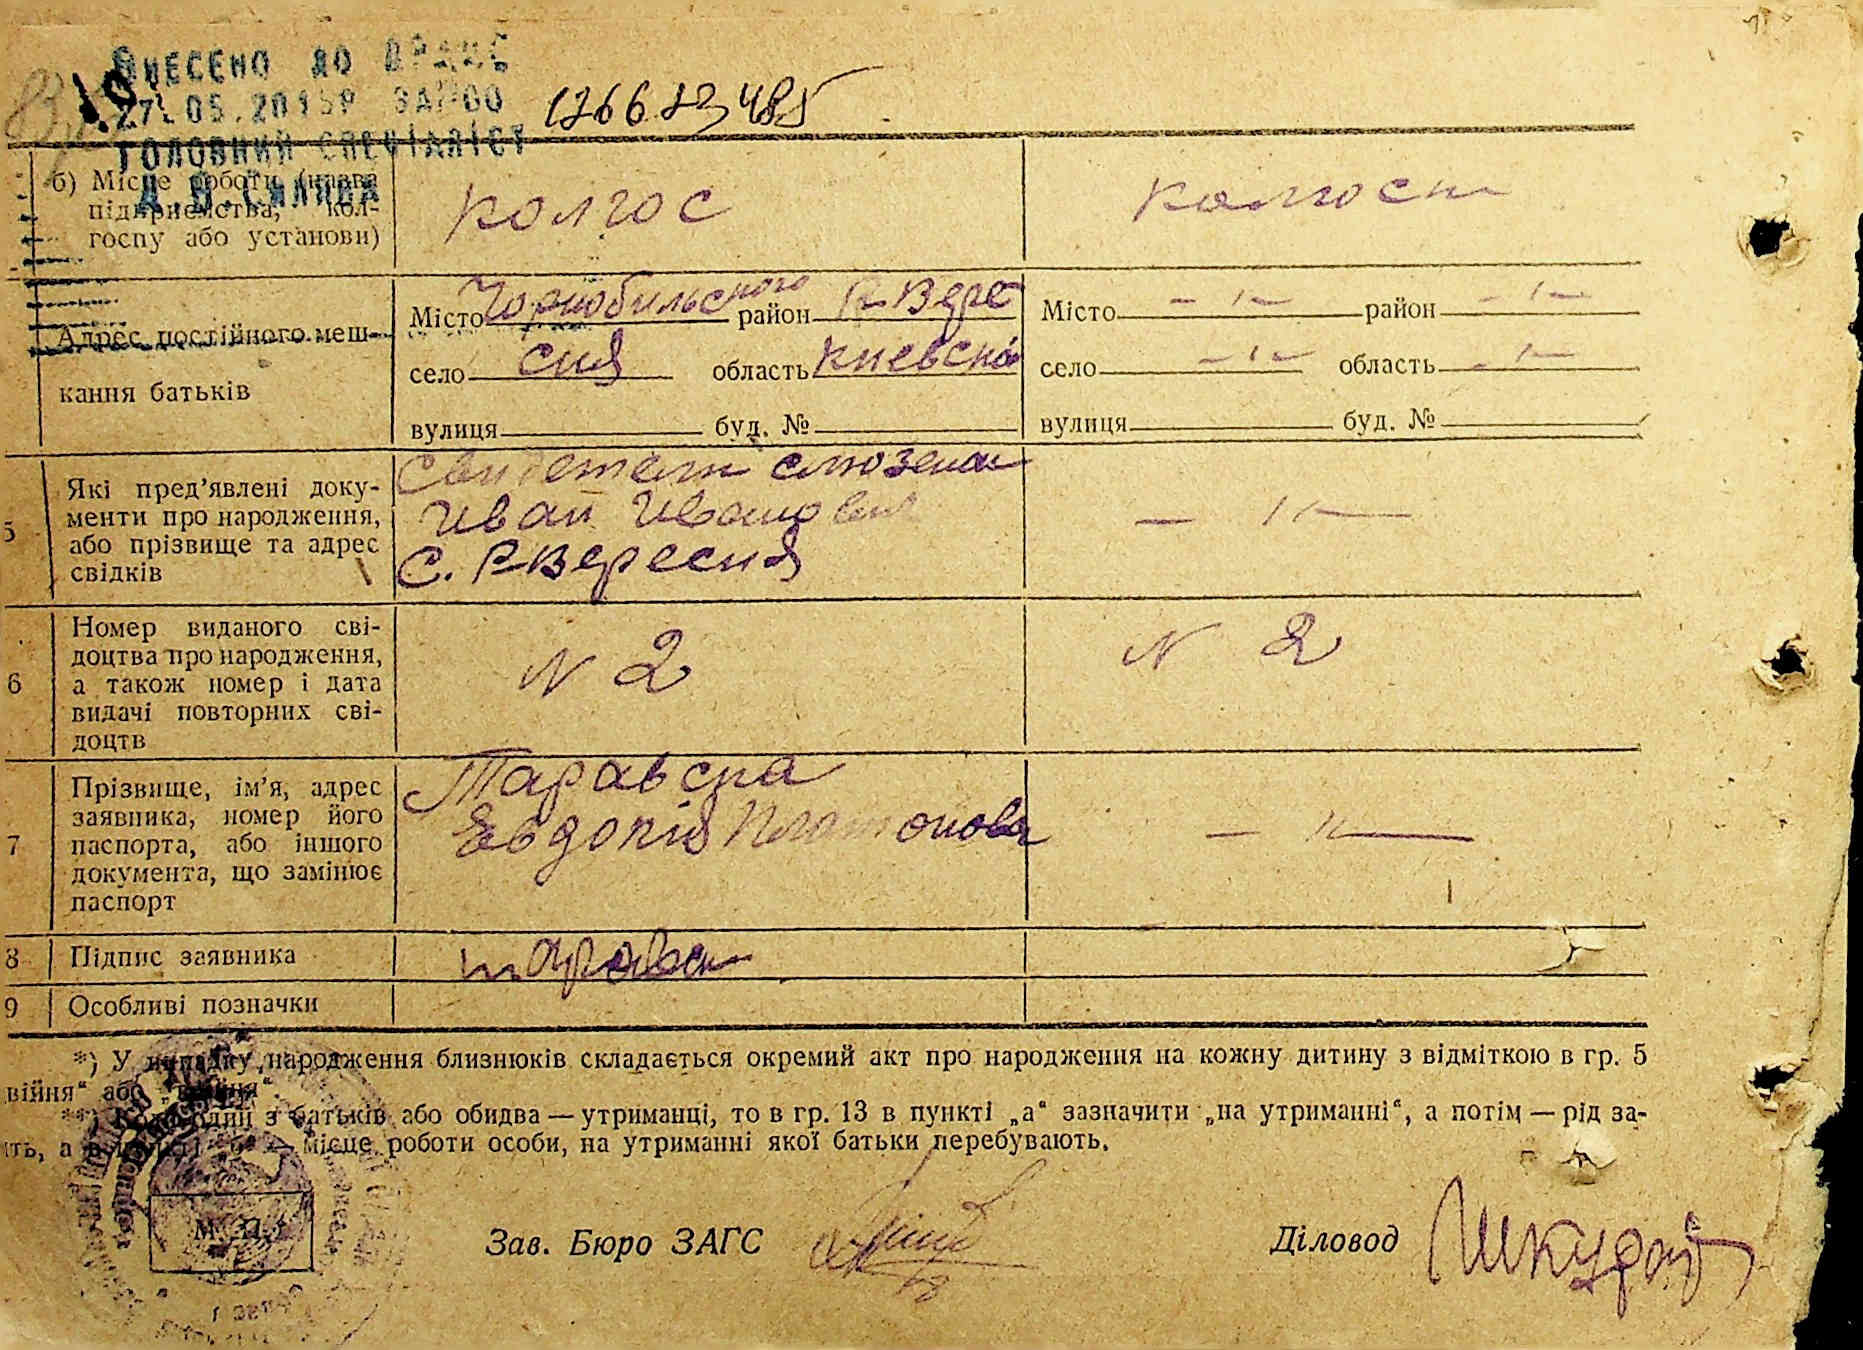 ВНЕСЕНО ДО ДРАЦС
27.05.2015Р
ГОЛОВНИЙ СПЕЦІАЛІСТ
б) Місце роботи (назва
підприємства, кол-
госпу або установи)
колгос
колгосп
Адрес постійного меш-
кання батьків
Місто Чорнобильского район Р-Вере
село сня область Киевска
вулиця буд. №
Місто - " - район - " -
село - " - область - " -
вулиця буд. №
5
Які пред’явлені доку-
менти про народження,
або прізвище та адрес
свідків
Свидетели
Иван Иванович
С. Р-Вересня
- " -
6
Номер виданого сві-
доцтва про народження,
а також номер і дата
видачі повторних сві-
доцтв
N 2
N 2
7
Прізвище, ім’я, адрес
заявника, номер його
паспорта, або іншого
документа, що замінює
паспорт
Таравска
Евдокія Платонова
- " -
8
Підпис заявника
9
Особливі позначки
*) У випадку народження близнюків складається окремий акт про народження на кожну дитину з відміткою в гр. 5
війня“ або
**) Коли один з батьків або обидва — утриманці, то в гр. 13 в пункті „а“ зазначити „на утриманні“, а потім — рід за-
ить, а в пункті „б“ — місце роботи особи, на утриманні якої батьки перебувають.
М. П.
Зав. Бюро ЗАГС
Діловод